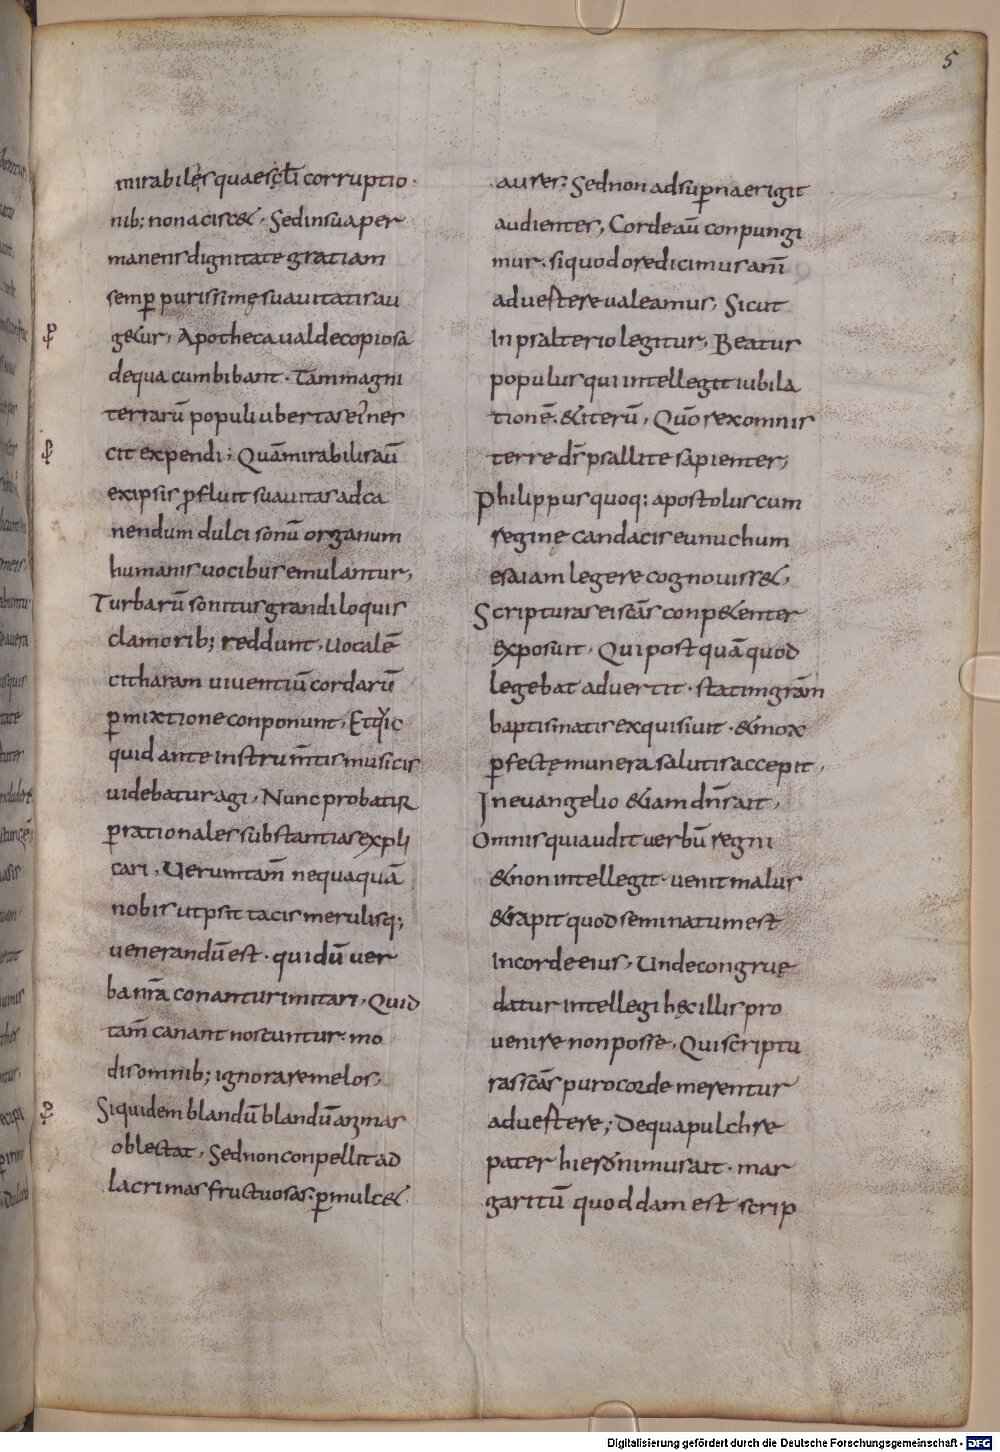 5
mirabilęs quae sclī corruptio
nib; non aciscet. Sed in sua per
manens dignitate gratiam
semp̱ purissimę suavitatis au
getur, Apotheca valde copiosa
de qua cum bibant. Tam magni
terrarū populi ubertas ei nes
cit expendi; Quā mirabilis aū
ex ipsis ꝓfluit suavitas ad ca
nendum dulci sonū organum
humanis vocibus emulantur,
Turbarū sonitus grandiloquis
clamorib; reddunt, Vocalē
citharam viventiū cordarū
ꝑmixtione conponunt, Et
quid ante instrum̄tis musicis
videbatur agi, Nunc probatur
ꝑ rationales substantias expli
cari, Verumtam̄ nequaquā
nobis ut psitacis merulisq;
venerandū est. qui dū ver
ba nr̄a conantur imitari, Quid
tam̄ canant noscuntur. mo
dis omnib; ignorare melos,
Siquidem blandū
oblectat, Sed non conpellit ad
lacrimas fructuosas. ꝑmulcet
aures, Sed non ad suꝑna erigit
audientes, Corde aū conpungi
mur. si quod ore dicimus anī
advertere valeamus, Sicut
In psalterio legitur, Beatus
populus qui intellegit iubila
tionē. & iterū, Qūo rex omnis
terre dr̄ psallite sapienter,
Philippus quoq; apostolus cum
reginę candacis eunuchum
esaiam legere cognovisset,
Scripturas ei scās conpetenter
exposuit, Qui postquā quod
legebat advertit. statim grām
baptismatis exquisivit. & mox
ꝑfectę munera salutis accepit,
In evangelio etiam dn̄s ait,
Omnis qui audit verbū regni
& non intellegit. venit malus
& rapit quod seminatum est
in corde eius, Unde congruę
datur intellegi hęc illis pro
venire non posse, Qui scriptu
ras scās puro corde merentur
advertere; De qua pulchre
pater hieronimus ait. mar
garitū quoddam est scrip
Digitalisierung gefördert durch die Deutsche Forschungsgemeinschaft - DFG